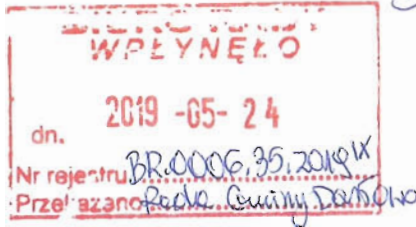 WPŁYNĘŁO
2019 -05- 24
dn.
Nr rejestru BR.0006.35.2019 IX
Przekazano Rada Gminy Darłowo